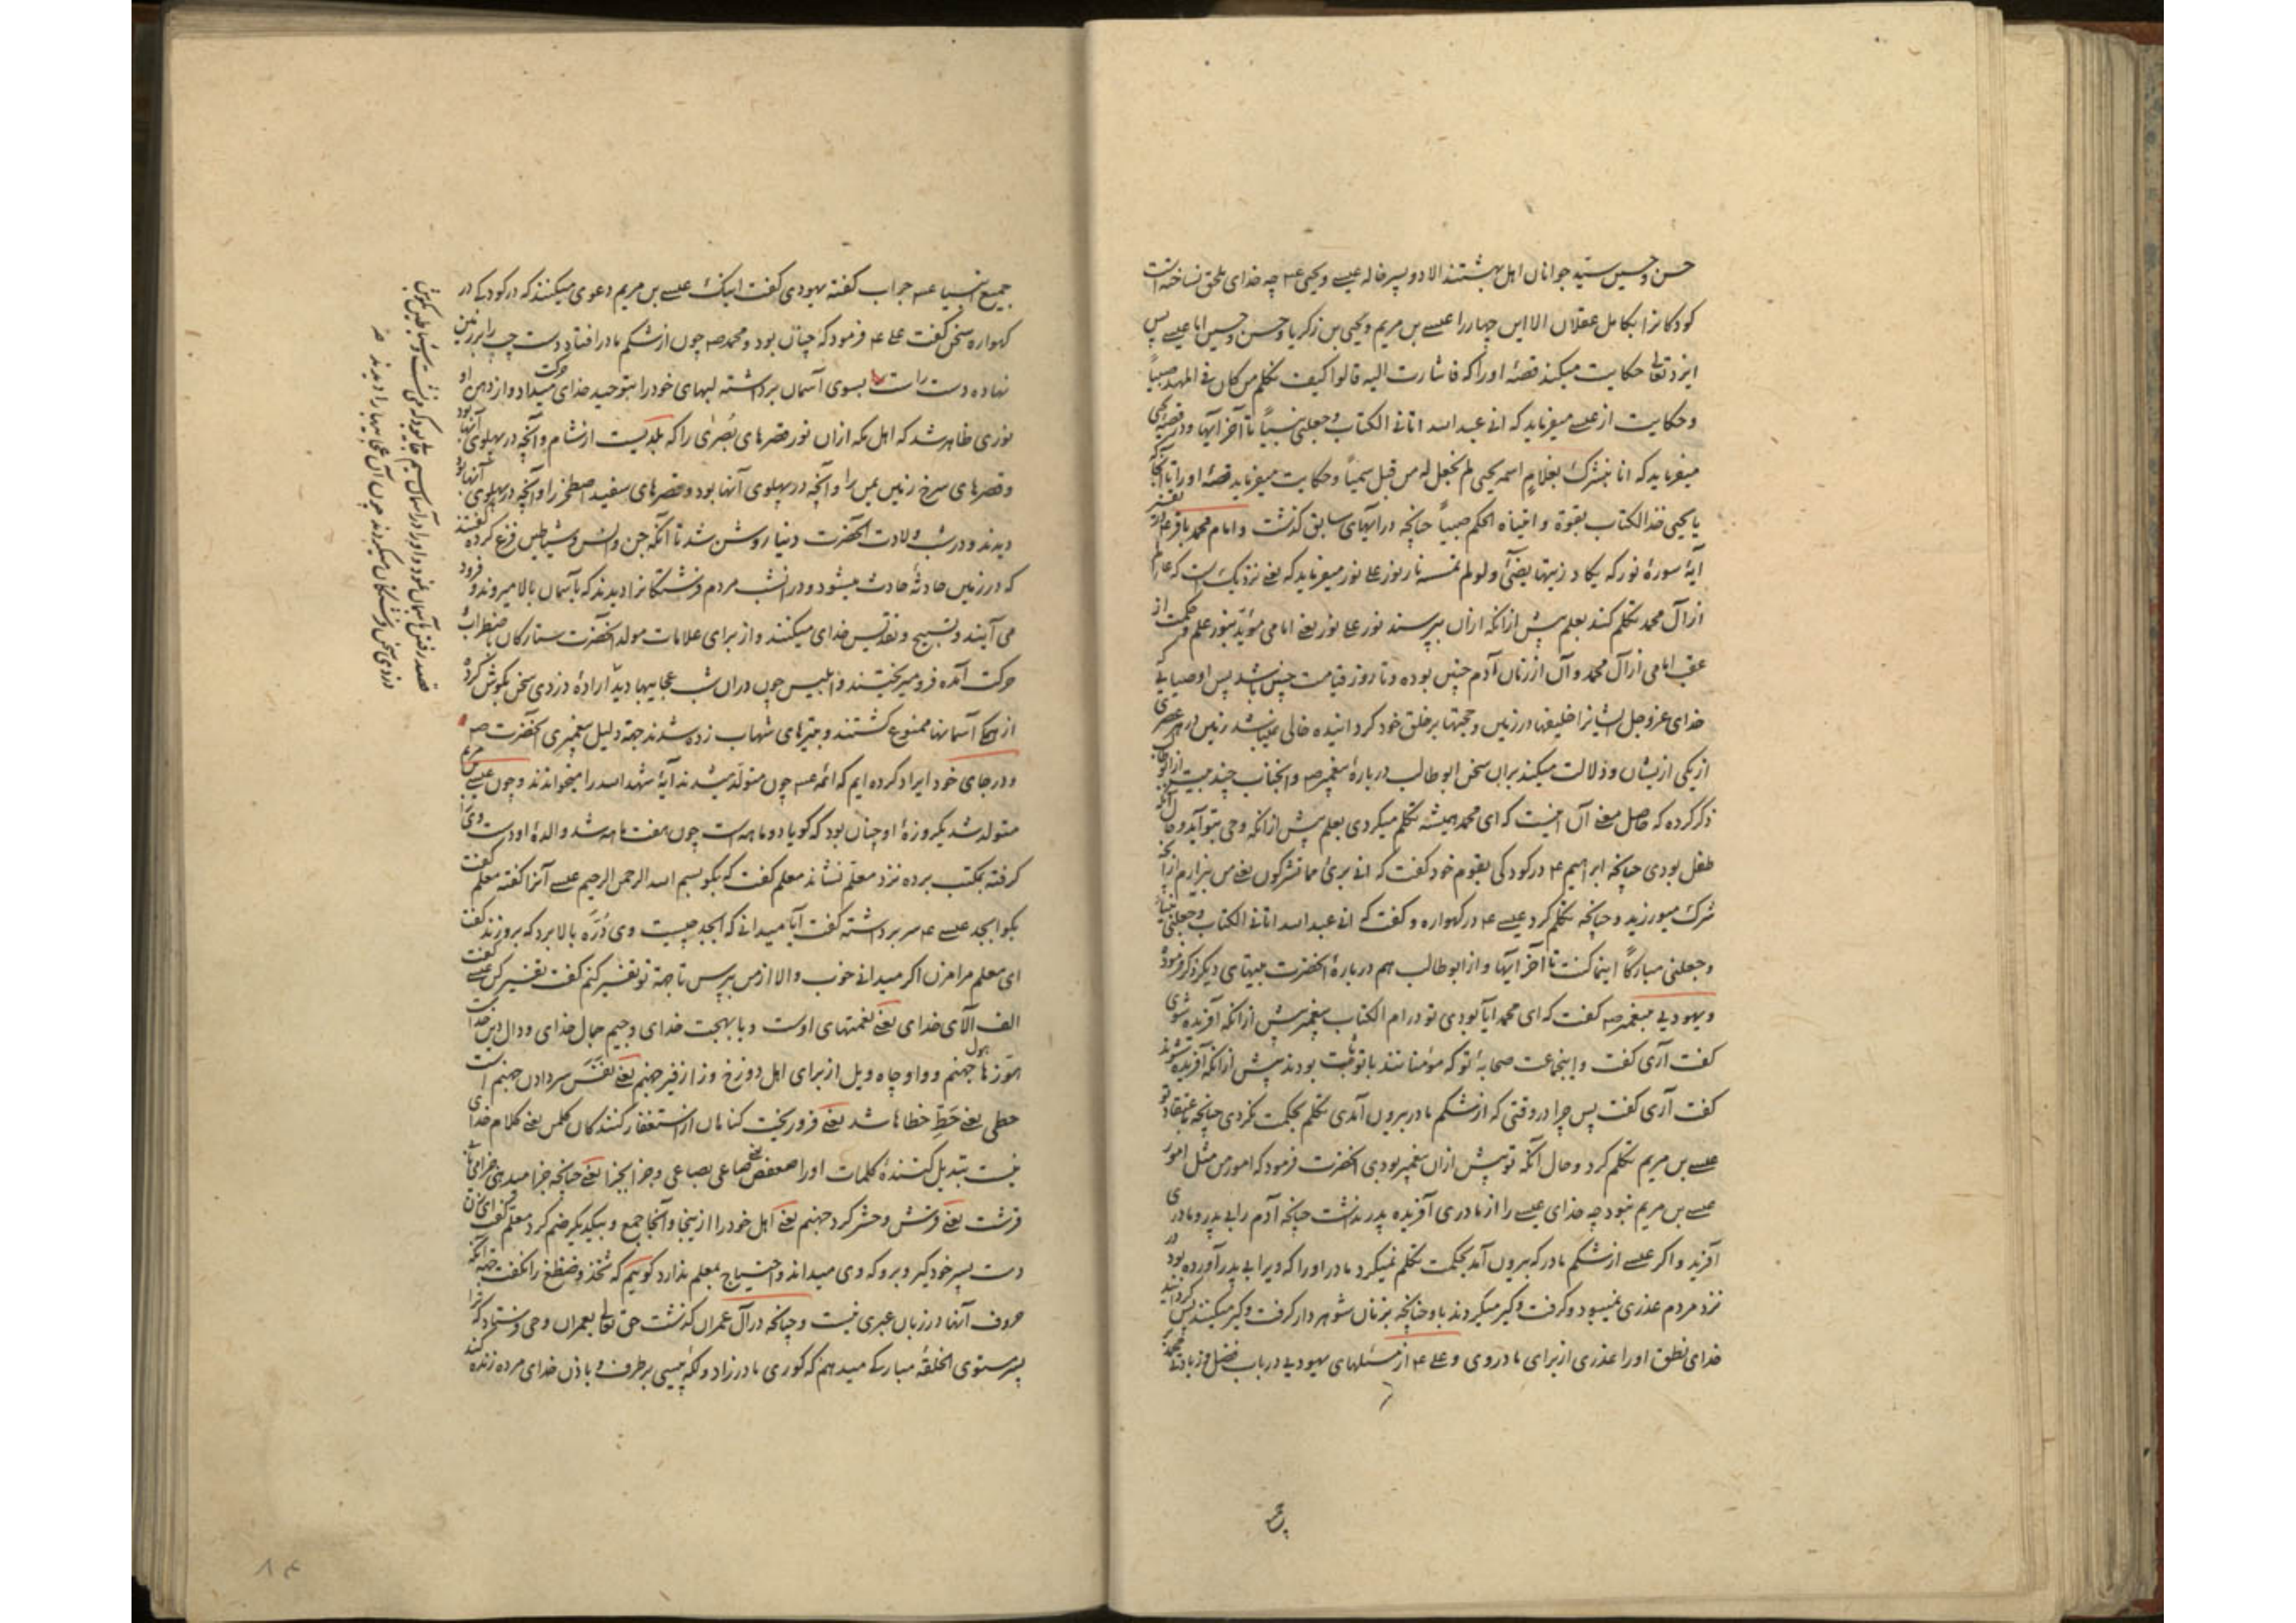 حسن و حسین سید جوانان اهل بهشتند الا دو پسر خاله عیسے و یحیی ع چه خدای ملحق نساخته است
کودکانرا بکامل عقلان الا این چهار را عیسے بن مریم و یحیی بن زکریا و حسن و حسین اما عیسے پس
ایزد تعالی حکایت میکند قصهٔ او را که فاشارت الیه قالوا کیف نکلم من کان فی المهد صبیاً
و حکایت از عیسے میفرماید که انی عبد الله اتانی الکتاب و جعلنی نبیاً تا آخر آیها و در قصهٔ یحیی
میفرماید که انا نبشرک بغلامٍ اسمه یحیی لم نجعل له من قبل سمیاً و حکایت میفرماید قصهٔ او را تا آنجا که
یا یحیی خذ الکتاب بقوة و اتیناه الحکم صبیاً چنانچه در آیهای سابق گذشت و امام محمد باقر ع در تفسیر
آیهٔ سورهٔ نور که یکاد زیتها یضیٔ و لو لم تمسسه نار نور علی نور میفرماید که یعنی نزدیک است که عالم
از آل محمد تکلم کند بعلم پیش از آنکه از آن بپرسند نور علی نور یعنی امامی مؤیّد بنور علم و حکمت از
عقب امامی از آل محمد و آن از زمان آدم چنین بوده و تا روز قیامت چنین باشد پس اوصیایی
خدای عز و جل ایشانرا خلیفها در زمین و حجتها بر خلق خود گردانیده خالی نمیباشد زمین در هر عصری
از یکی ازیشان و دلالت میکند بر آن سخن ابو طالب در بارهٔ پیغمبر صه و آنجناب چند بیت از ابو طالب
ذکر کرده که حاصل معنی آن اینست که ای محمد همیشه تکلم میکردی بعلم پیش از آنکه وحی بتو آید و حال آنکه
طفل بودی چنانچه ابراهیم ع در کودکی بقوم خود گفت که انی بریٔ مما تشرکون یعنی من بیزارم از آنچه
شرک میورزید و چنانچه تکلم کرد عیسے ع در گهواره و گفت که انی عبد الله اتانی الکتاب و جعلنی نبیاً
و جعلنی مبارکاً اینما کنت تا آخر آیها و از ابو طالب هم در بارهٔ آنحضرت بیتهای دیگر ذکر فرموده
و یهودیی بپیغمبر صه گفت که ای محمد آیا بودی تو در ام الکتاب پیغمبر پیش از آنکه آفریده شوی
گفت آری گفت و اینجماعت صحابهٔ تو که مؤمنانند با تو ثبت بودند پیش از آنکه آفریده شوند
گفت آری گفت پس چرا در وقتی که از شکم مادر بیرون آمدی تکلم بحکمت نکردی چنانچه باعتقاد تو
عیسے بن مریم تکلم کرد و حال آنکه تو پیش از آن پیغمبر بودی آنحضرت فرمود که امور من مثل امور
عیسے بن مریم نبود چه خدای عیسے را از مادری آفریده پدر نداشت چنانچه آدم را بی پدر و مادری
آفرید و اگر عیسے از شکم مادر که بیرون آمد بحکمت تکلم نمیکرد مادر او را که ویرا بی پدر آورده بود در
نزد مردم عذری نمیبود و گرفت و گیر میکردند با و چنانچه بزنان شوهردار گرفت و گیر میکنند پس گردانید
خدای نطق او را عذری از برای مادر وی و علی ع از مسئلهای یهودیی در باب فضل و زیادتی محمد بر
جمیع انبیا ع جواب گفته یهودی گفت اینک عیسے بن مریم دعوی میکنند که در کودکی در
گهواره سخن گفت علی ع فرمود که چنان بود و محمد صه چون از شکم مادر افتاد دست چپ را بر زمین
نهاده دست راست را بسوی آسمان برداشته لبهای خود را بتوحید خدای حرکت میداد و از دهن او
نوری ظاهر شد که اهل مکه از آن نور قصرهای بُصرٰی را که بلدیست از شام و آنچه در پهلوی آنها بود
و قصرهای سرخ زمین یمن را و آنچه در پهلوی آنها بود و قصرهای سفید اصطخر را و آنچه در پهلوی آنها بود
دیدند و در شب ولادت آنحضرت دنیا روشن شد تا آنکه جن و انس و شیاطین فزع کرده گفتند
که در زمین حادثهٔ حادث میشود و در آنشب مردم فرشتگانرا دیدند که بآسمان بالا میروند و فرود
می آیند و تسبیح و تقدیس خدای میکنند و از برای علامات مولد آنحضرت ستارگان باضطراب
حرکت آمده فرو میریختند و ابلیس چون در آن شب عجایبها دید ارادهٔ دزدی سخن بگوش کرده
از همه آسمانها ممنوع گشتند و بتیرهای شهاب زده شدند جهة دلیل پیغمبری آنحضرت صه
و در جای خود ایراد کرده ایم که ائمه ع چون متولد میشدند آیهٔ شهد الله را میخواندند و چون عیسے بن مریم
متولد شد یکروزهٔ او چنان بود که گویا دو ماهه است چون هفت ماهه شد والدهٔ او دست ویرا
گرفته بمکتب برده نزد معلم نشاند معلم گفت که بگو بسم الله الرحمن الرحیم عیسے آنرا گفته معلم گفت
بگو ابجد عیسے ع سر برداشته گفت آیا میدانی که ابجد چیست وی دُرّه بالا برد که بر وزند گفت
ای معلم مرا مزن اگر میدانی خوب و الا از من بپرس تا جهة تو تفسیر کنم گفت تفسیر کن عیسے گفت
الف آلای خدای یعنی نعمتهای اوست و با بهجت خدای و جیم جمال خدای و دال دین خداست
هوّز ها هول جهنم و واو چاه ویل از برای اهل دوزخ و زا زفیر جهنم یعنی نفس سر دادن جهنم است
حطی یعنی حَطِّ خطاها شد یعنی فرو ریخت گناهان از استغفار کنندگان کلمن یعنی کلام خدای
نیست تبدیل کنندهٔ کلمات او را صعفص یعنی صاعی بصاعی و جزا بجزا یعنی چنانچه جزا میدهی جزا می یابی
قرشت یعنی قرشش و حشر کرد جهنم یعنی اهل خود را از اینجا و آنجا جمع و بیکدیگر ضم کرد معلم گفت ای زن
دست پسر خود گیر و برو که وی میداند و احتیاج بمعلم ندارد گوییم که ثخذ و ضظغ را نگفت جهة آنکه
حروف آنها در زبان عبری نیست و چنانکه در آل عمران گذشت حق تعالی بعمران وحی فرستاد که ترا
پسر مستوی الخلقهٔ مبارکی میدهم که کوری مادرزاد و لکه پیسی برطرف و باذن خدای مرده زنده کند
قصد رفتن بآسمان نمود و او را در آسمان سیم جای بود که می نشست و شیاطین گوش
دزدی سخن فرشتگان میکردند چون آن عجایبها را دیدند
۸۴